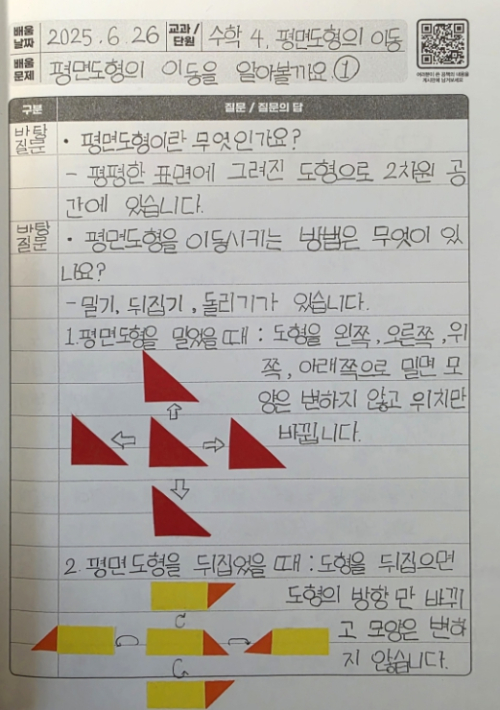 배움 날짜 2025. 6. 26 교과 / 단원 수학 4. 평면도형의 이동
배움 문제 평면도형의 이동을 알아볼까요 ①
구분 질문 / 질문의 답
바탕 질문 • 평면도형이란 무엇인가요?
- 평평한 표면에 그려진 도형으로 2차원 공
간에 있습니다.
바탕 질문 • 평면도형을 이동시키는 방법은 무엇이 있
나요?
- 밀기, 뒤집기, 돌리기가 있습니다.
1. 평면도형을 밀었을 때 : 도형을 왼쪽, 오른쪽, 위
쪽, 아래쪽으로 밀면 모
양은 변하지 않고 위치만
바뀝니다.
2. 평면도형을 뒤집었을 때 : 도형을 뒤집으면
도형의 방향 만 바뀌
고 모양은 변하
지 않습니다.